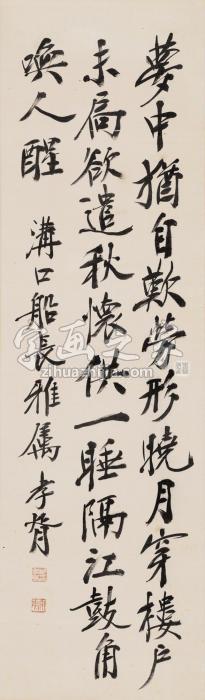 夢中猶自歎勞形曉月穿樓戶
未扃欲遣秋懷供一睡隔江鼓角
喚人醒　溝口船長雅屬　孝胥